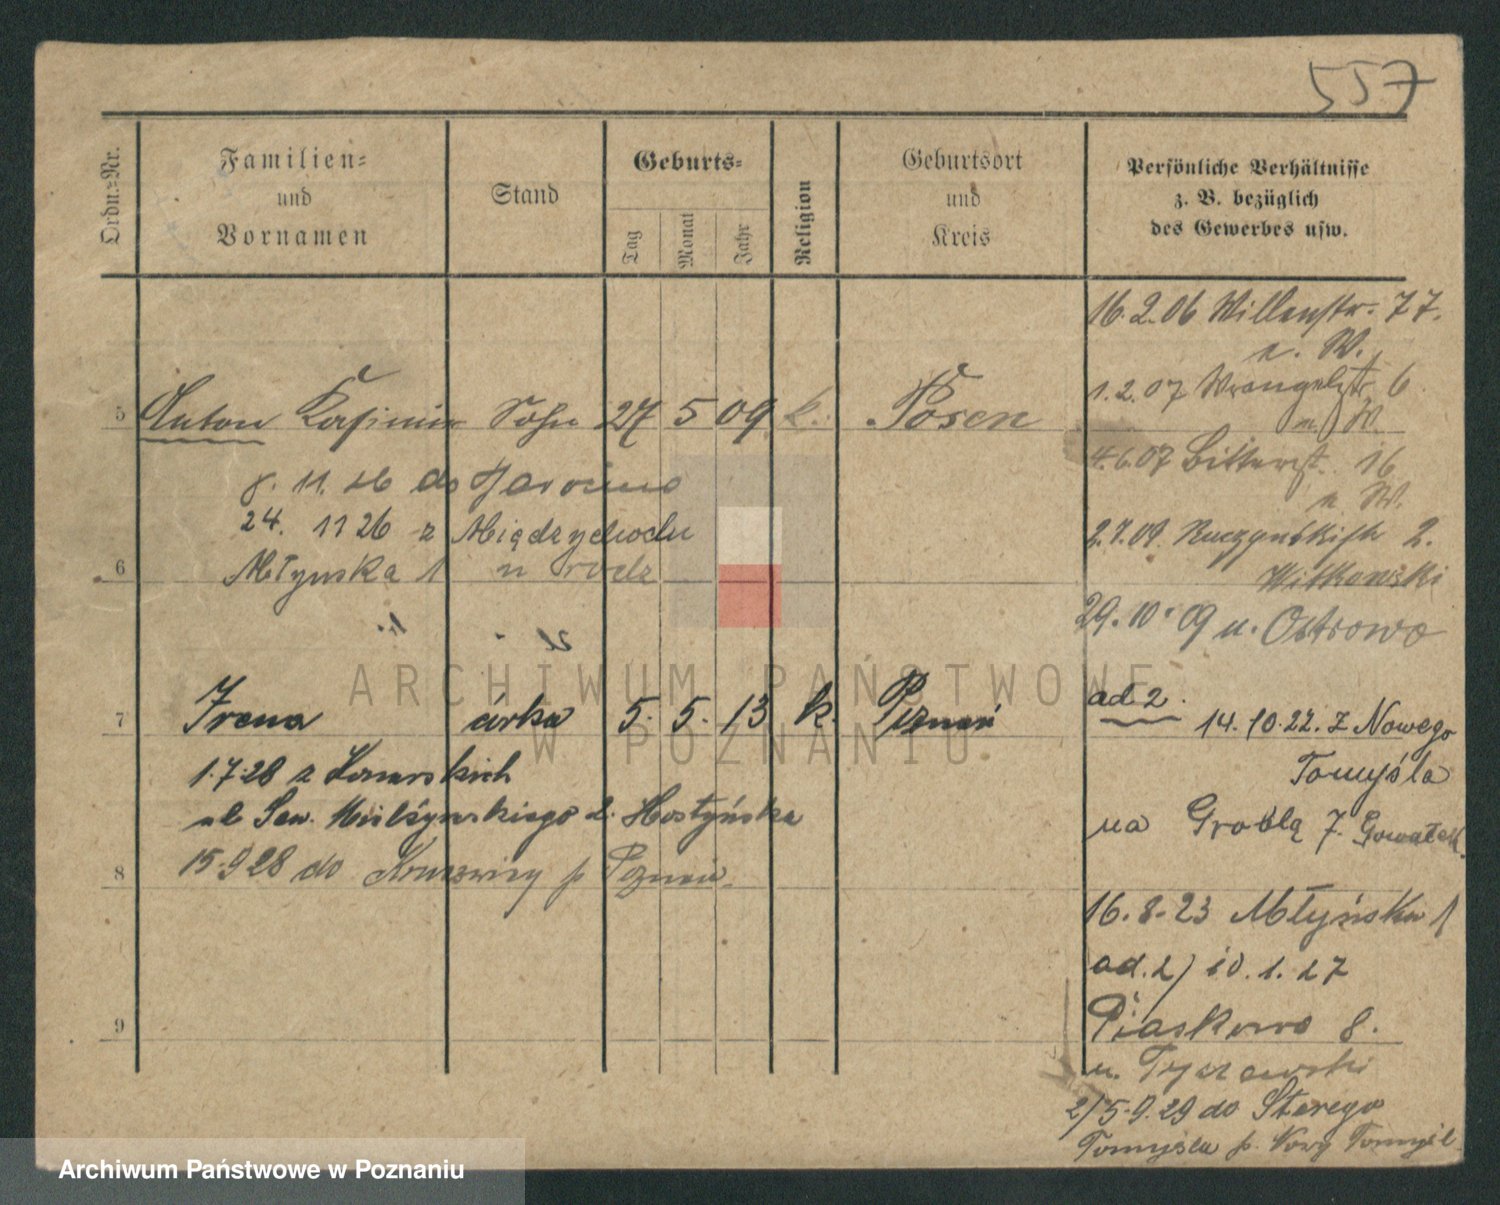 557
Ordn.=Nr.
Familien=
und
Vornamen
Stand
Geburts=
Tag
Monat
Jahr
Religion
Geburtsort
und
Kreis
Persönliche Verhältnisse
z. B. bezüglich
des Gewerbes usw.
16.2.06 77.
n. W.
1.2.07 Wrangelstr. 6
n. W.
5 Anton Kasimir Sohn 27 5 09 k. Posen
4.6.07 Bitterst. 16
n W.
8. 11. 26 do Jarocina
24. 11 26 z Międzychodu
2.7.09 2.
6 Młyńska 1 u rodz
Witkowski
29.10.09 n. Ostrowo
ad.2.
7 Irena córka 5. 5. 13 k. Poznań
14.10.22. z Nowego
Tomyśla
1.7.28 z
ul Sew. Mielżyńskiego Hostyńska
na Groblą 7.
8 15.9.28 do Kruszwicy p
16.8.23 Młyńska 1
ad.2) 10.1.27
9 Piaskowo 8.
u.
2) 5.9.29 do Starego
Tomyśla p. Nowy Tomyśl
ARCHIWUM PAŃSTWOWE
W POZNANIU
Archiwum Państwowe w Poznaniu